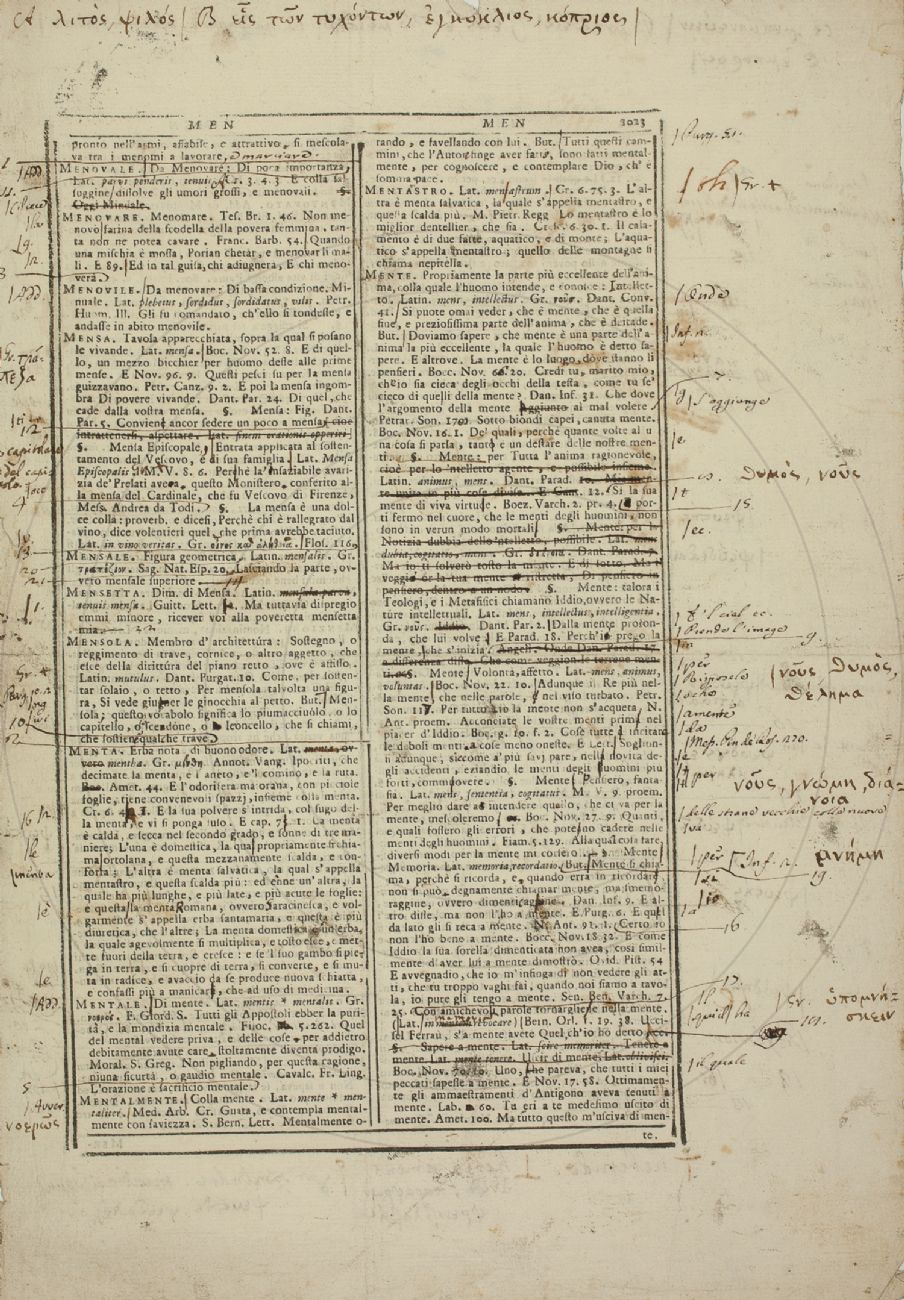 λιτὸς, ψιλὸς | B εἷς τῶν τυχόντων, ἐγκύκλιος, κόπριος
MEN
MEN 3023
pronto nell'armi, affabile, e attrattivo, si mescola-
va tra i menomi a lavorare,
MENOVALE. Da Menovare: Di poca importanza,
Lat. parvi ponderis, tenuis
loggine dissolve gli umori grossi, e menovali. §.
Oggi Minuale.
MENOVARE. Menomare. Tes. Br. 1. 46. Non me-
novò farina della scodella della povera femmina, tan-
ta non ne potea cavare. Franc. Barb. 54. Quando
una mischia è mossa, Porian chetar, e menovar li ma-
li. E 89. Ed in tal guisa, chi adiugnera, E chi meno-
verà.
MENOVILE. Da menovare: Di bassa condizione. Mi-
nuale. Lat. plebeius, sordidus, sordidatus, vilis. Petr.
Huom. Ill. Gli fu comandato, ch'ello si tondesse, e
andasse in abito menovile.
MENSA. Tavola apparecchiata, sopra la qual si posano
le vivande. Lat. mensa. Bocc. Nov. 52. 8. E di quel-
lo, un mezzo bicchier per huomo desse alle prime
mense. E Nov. 96. 9. Questi pesci su per la mensa
guizzavano. Petr. Canz. 9. 2. E poi la mensa ingom-
bra Di povere vivande. Dant. Par. 24. Di quel, che
cade dalla vostra mensa. §. Mensa: Fig. Dant.
Par. 5. Convienti ancor sedere un poco a mensa, cioe
intrattenersi, aspettare. Lat. finem orationis opperiri
§. Mensa Episcopale, Entrata applicata al sosten-
tamento del Vescovo, e di sua famiglia. Lat. Mensa
Episcopalis. M. V. 8. 6. Perchè la 'nsaziabile avari-
zia de' Prelati avea, questo Monistero, conferito al-
la mensa del Cardinale, che fu Vescovo di Firenze,
Mess. Andrea da Todi. §. La mensa è una dol-
ce colla: proverb. e dicesi, Perchè chi è rallegrato dal
vino, dice volentieri quel, che prima avrebbe taciuto.
Lat. in vino veritas. Gr. οἶνος καὶ ἀλήθεια. Flos. 116.
MENSALE. Figura geometrica. Latin. mensalis. Gr.
τραπέζιον. Sag. Nat. Esp. 20. Lasciando la parte, ov-
vero mensale superiore
MENSETTA. Dim. di Mensa. Latin. mensula parva,
tenuis mensa. Guitt. Lett. Ma tuttavia dispregio
emmi minore, ricever voi alla poveretta mensetta
mia.
MENSOLA. Membro d'architettura: Sostegno, o
reggimento di trave, cornice, o altro aggetto, che
esce della dirittura del piano retto, ove è affisso.
Latin. mutulus. Dant. Purgat. 10. Come, per sosten-
tar solaio, o tetto, Per mensola talvolta una figu-
ra, Si vede giugner le ginocchia al petto. But. Men-
sola; questo vocabolo significa lo piumacciuolo, o lo
capitello, o scendone, o leoncello, che si chiami,
che sostien qualche trave.
MENTA. Erba nota, di buono odore. Lat. menta, ov-
vero mentha. Gr. μίνθη. Annot. Vang. Ipocriti, che
decimate la menta, e i aneto, e 'l comino, e la ruta.
Boc. Amet. 44. E l'odorifera maiorana, con picciole
foglie, tiene convenevoli spazzj, insieme colla menta.
Cr. 6. E la sua polvere s'intrida, col sugo del-
la menta, e vi si ponga suso. E cap. La menta
è calda, e secca nel secondo grado, e sonne di tre ma-
niere; L'una è domestica, la qual propriamente si chia-
ma ortolana, e questa mezzanamente scalda, e con-
forta; L'altra è menta salvatica, la qual s'appella
mentastro, e questa scalda più: ed enne un'altra, la
quale ha più lunghe, e più late, e più acute le foglie:
e questa è la menta Romana, ovvero Saracinesca, e vol-
garmente s'appella erba santamaria, e questa è più
diuretica, che l'altre; La menta domestica è un'erba,
la quale agevolmente si multiplica, e tosto esce, e met-
te fuori della terra, e cresce: e se 'l suo gambo si pie-
ga in terra, e si cuopre di terra, si converte, e si mu-
ta in radice, e avaccio da se produce nuova schiatta,
e confassi più a manicare, che ad uso di medicina.
MENTALE. Di mente. Lat. mentis * mentalis. Gr.
νοερός. F. Giord. S. Tutti gli Appostoli ebber la puri-
tà, e la mondizia mentale. Filoc. 5. 262. Quel
del mental vedere priva, e delle cose, per addietro
debitamente avute care, stoltamente diventa prodigo.
Moral. S. Greg. Non pigliando, per questa ragione,
niuna sicurtà, o gaudio mentale. Cavalc. Fr. Ling.
L'orazione è sacrificio mentale.
MENTALMENTE. Colla mente. Lat. mente * men-
taliter. Med. Arb. Cr. Gusta, e contempla mental-
mente con saviezza. S. Bern. Lett. Mentalmente o-
rando, e favellando con lui. But. Tutti questi cam-
mini, che l'Autore finge aver fatto, sono fatti mental-
mente, per cognoscere, e contemplare Dio, ch'è
somma pace.
MENTASTRO. Lat. mentastrum. Gr. 6. 75. 3. L'al-
tra è menta salvatica, la quale s'appella mentastro, e
questa scalda più. M. Pietr. Regg. Lo mentastro è lo
miglior dentellier, che sia. Cr. 6. 30. 1. Il cala-
mento è di due fatte, aquatico, e di monte; L'aqua-
tico s'appella mentastro; quello delle montagne si
chiama nepitella.
MENTE. Propriamente la parte più eccellente dell'ani-
ma, colla quale l'huomo intende, e conosce: Intellet-
to. Latin. mens, intellectus. Gr. νοῦς. Dant. Conv.
41. Si puote omai veder, che è mente, che è quella
fine, e preziosissima parte dell'anima, che è deitade.
But. Doviamo sapere, che mente è una parte dell'a-
nima la più eccellente, la quale l'huomo è detto sa-
pere. E altrove. La mente è lo luogo, dove stanno li
pensieri. Bocc. Nov. 66. 20. Credi tu, marito mio,
ch'io sia cieca degli occhi della testa, come tu se'
cieco di quelli della mente? Dan. Inf. 31. Che dove
l'argomento della mente Aggiunto al mal volere
Petrar. Son. 170. Sotto biondi capei, canuta mente.
Bocc. Nov. 16. 1. De' quali, perchè quante volte al u-
na cosa si parla, tanto è un destare delle nostre men-
ti. §. Mente: per Tutta l'anima ragionevole,
cioè per lo 'ntelletto agente, e possibile insieme.
Latin. animus, mens. Dant. Parad. 10.
12. Si la sua
mente di viva virtude. Boez. Varch. 2. pr. 4. por-
ti fermo nel cuore, che le menti degli huomini, non
sono in verun modo mortali §. Mente: per la
Notizia dubbia dell'intelletto, possibile. Lat. men
dubia, cogitatio, mens. Gr. Dant. Parad. 7.
Ma io ti solverò tosto la mente. E di sotto. Ma i
veggio or la tua mente ristretta, Di pensiero in
pensiero, dentro a un nodo §. Mente: talora i
Teologi, e i Metafisici chiamano Iddio, ovvero le Na-
ture intellettuali. Lat. mens, intellectus, intelligentia.
Gr. νοῦς. Iddio. Dant. Par. 2. Dalla mente profon-
da, che lui volve. E Parad. 18. Perch'io prego la
mente, che s'inizia. Angeli. Onde Dan. Parad. 17.
a differenza dissa. Che come veggion le terrene men-
ti. §. Mente Volontà, affetto. Lat. mens, animus,
voluntas. Bocc. Nov. 22. 10. Adunque il Re più nel-
la mente, che nelle parole, o nel viso turbato. Petr.
Son. 117. Per tutto ciò la mente non s'acqueta. N.
Ant. proem. Acconciate le vostre menti prima nel
piacer d'Iddio. Bocc. g. 10. f. 2. Cose tutte incitare
le deboli menti a cose meno oneste. E Lett. Soglion-
n adunque, siccome a' più savj pare, nella novità de-
gli accidenti, eziandio le menti degli huomini più
forti, commuovere. §. Mente Pensiero, fanta-
sia. Lat. mens, sententia, cogitatus. M. V. 9. proem.
Per meglio dare ad intendere quello, che ci va per la
mente, mescoleremo Boc. Nov. 27. 9. Quanti,
e quali fossero gli errori, che potesno cadere nelle
menti degli huomini. Fiam. 5. 129. Alla qual cosa fare,
diversi modi per la mente mi cosiero. §. Mente
Memoria. Latin. memoria, recordatio. But. Mente si chia-
ma, perchè si ricorda, e quando erra in ricordare
non si può degnamente chiamar mente, ma smemo-
raggine, ovvero dimenticagine. Dan. Inf. 9. E al-
tro disse, ma non l'ho a mente. E Purg. 6. E quei
da lato gli si reca a mente. N. Ant. 92. 1. Certo io
non l'ho bene a mente. Bocc. Nov. 18. 32. E come
Iddio la sua sorella dimenticata non avea, così simil-
mente d'aver lui a mente dimostrò. Ovid. Pist. 54
E avvegnadio, che io m'infinga di non vedere gli at-
ti, che tu troppo vaghi fai, quando noi siamo a tavo-
la, io pute gli tengo a mente. Sen. Ben. Varch. 7.
25. Con amichevoli parole tornargliele nella mente.
(Lat. in memoria revocare) Bern. Orl. 1. 19. 38. Ucci-
sel Ferrau, s'a mente avete Quel ch'io ho detto
§. Sapere a mente. Lat. scire memoriter. Tenere a
mente. Lat. mente tenere. Uscir di mente. Lat. oblivisci.
Boc. Nov. Uno, che pareva, che tutti i miei
peccati sapesse a mente. E Nov. 17. 58. Ottimamen-
te gli ammaestramenti d'Antigono aveva tenuti a
mente. Lab. 60. Tu eri a te medesimo uscito di
mente. Amet. 100. Ma tutto questo m'usciva di men-
te.
Add.
τρα-
πεζα
capitolo
Purg. 10.
Add.
νοερῶς
Onde
s'aggiunge
θυμὸς, νοῦς
15.
ec.
9.
νοῦς θυμὸς,
θέλημα
per
amente
νοῦς, γνώμη, διά-
νοια
delle strane vecchie colla nuova
per
μνήμη
19.
16
17.
ὑπομνή-
σκειν
il quale